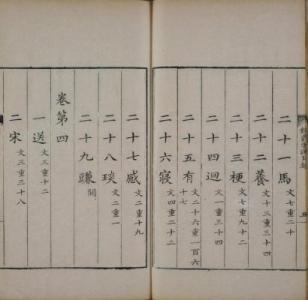 二十一馬 文七重二十
二十二養 文十三重三十四
二十三梗 文七重九十二
二十四迥 文一重三十四
二十五有 文二十六重一百六
二十六寑 文四重二十二
二十七感 文二重十九
二十八琰 文二重一
二十九豏
卷第四
一送 文三重十二
二宋 文三重三十八